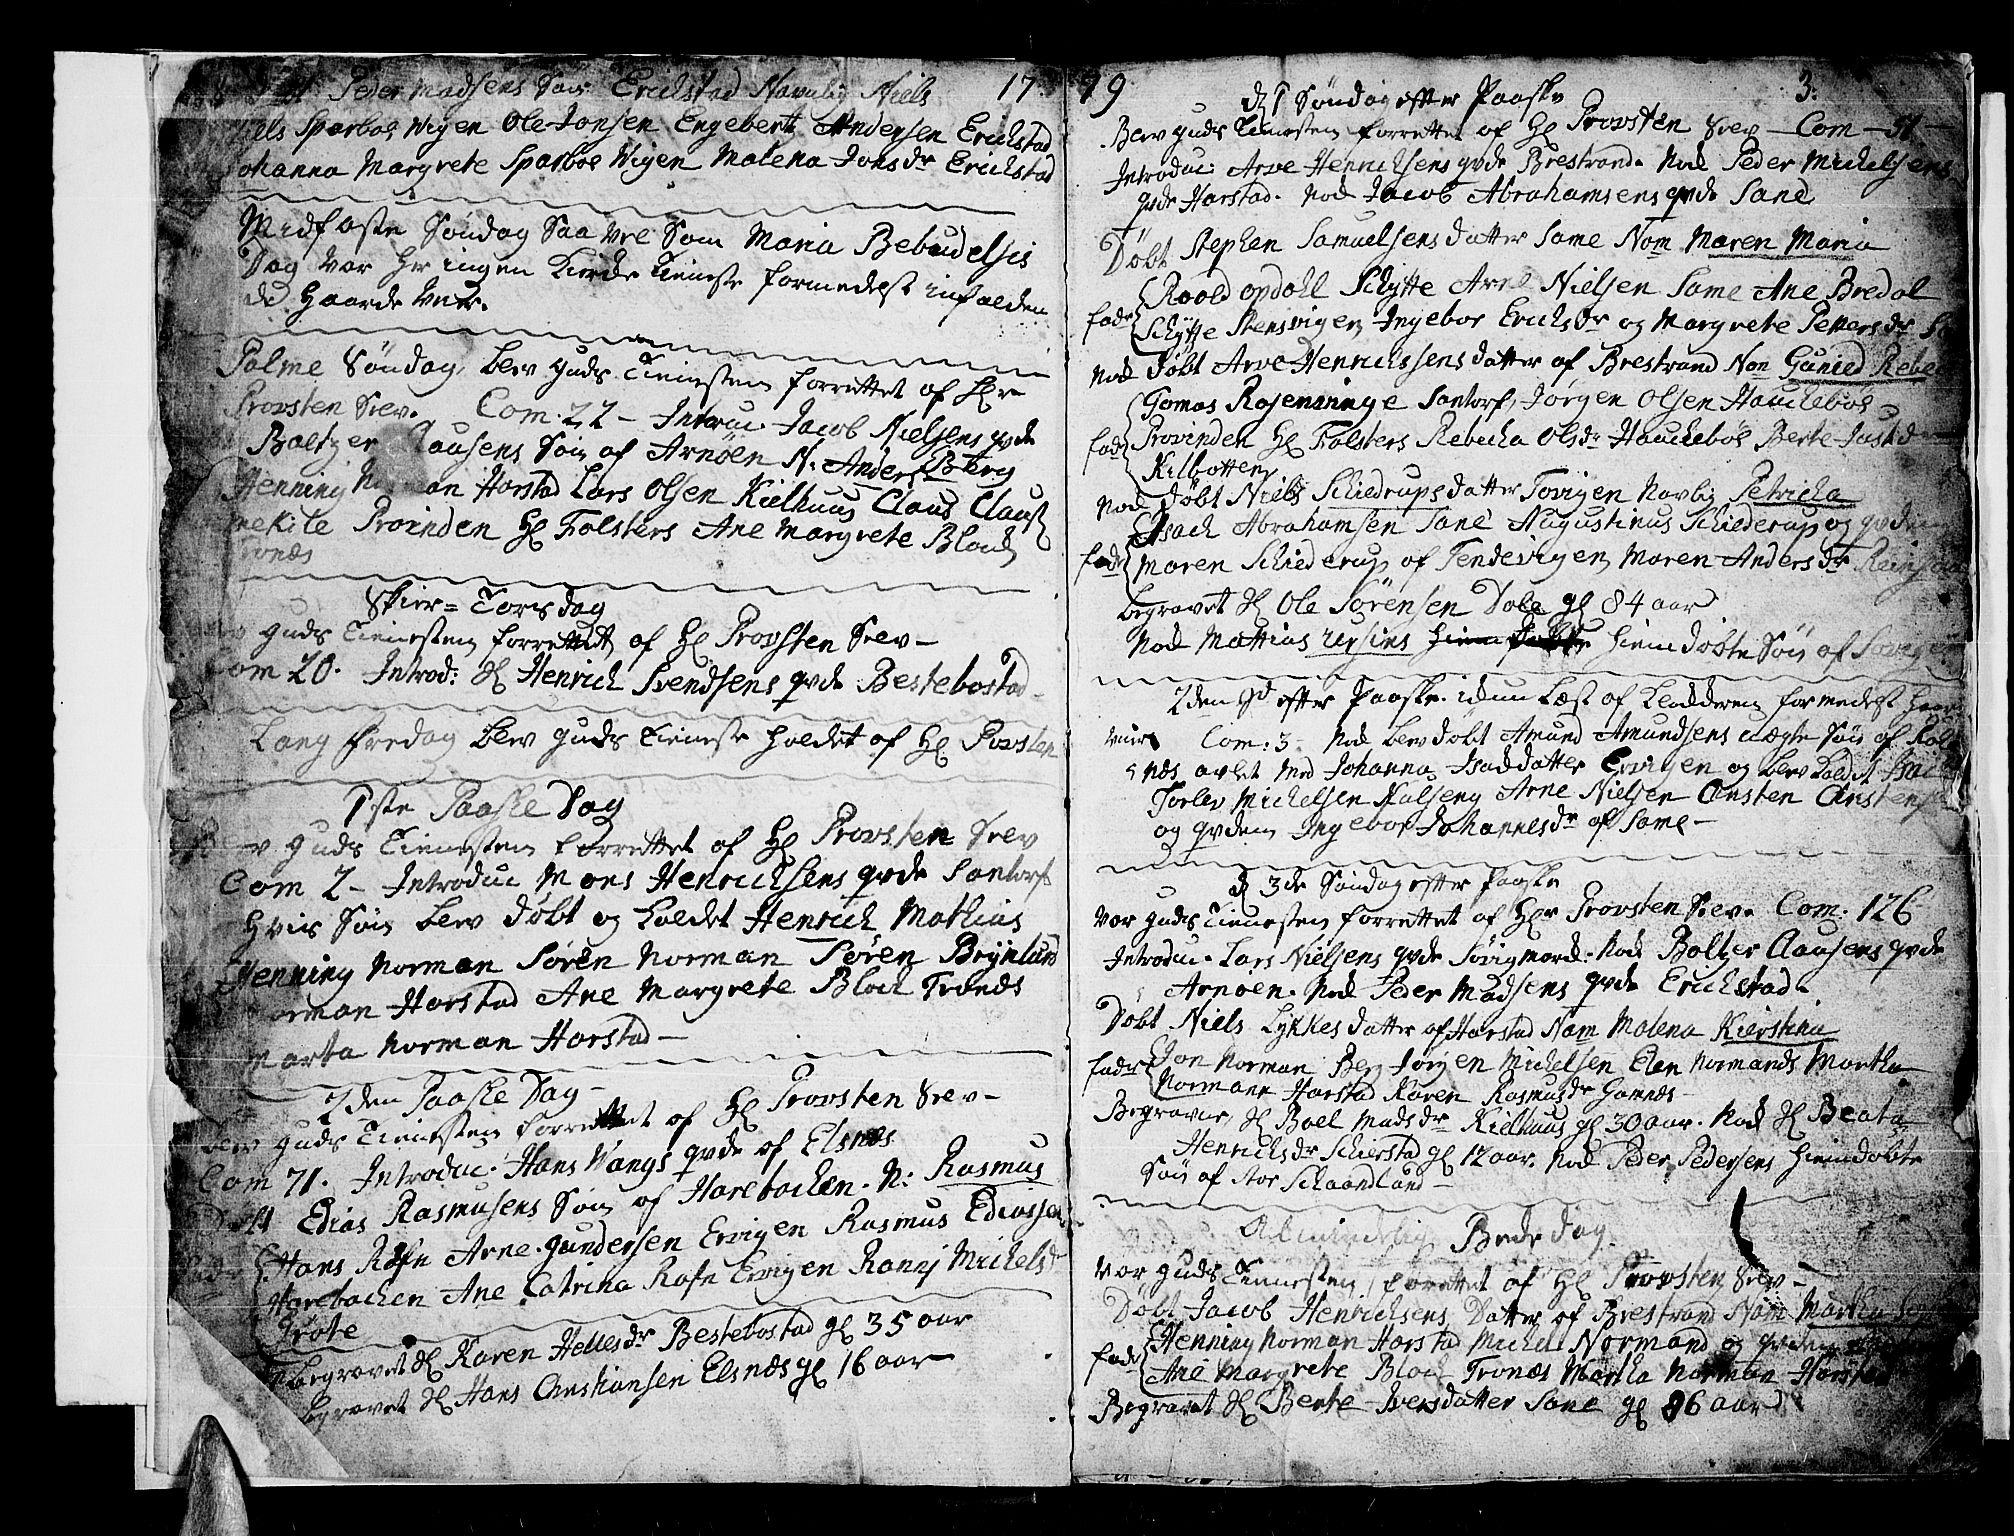 Peder Madsens Søn Erichstad Navnlig Niels 17
Niels Sparboe Wigen Ole Jonsen Engebert Andersen Erichstad
Johanna Margrete Sparboe Wigen Malena Jonsdr Erichstad
Midfaste Søndag Saa vel Som Maria Bebudelses
Dag var her ingen Kirke Tieneste formedelst infalden
de Haarde Veir.
Palme Søndag blev Guds Tienesten forrettet af Hr
Provsten Srev. Com. 22 – Introuc. Jacob Nielsens qvde
Baltzer Clausens Søn af Arnøen N. Anders Berg
Henning Norman Harstad Lars Olsen Kielhuus Claus Claus
Provinden Hl Folsters Ane Margrete Bloch
Tronæs
Skier = Torsdag
Guds Tienesten forrettet af Hl Provsten Srev –
Com 20. Introd: Hl Henrich Svendsens qvde Bestebostad
Lang Fredag blev Guds Tieneste holdet af Hl Provsten
1ste Paaske Dag
blev Guds Tienesten forrettet af Hl Provsten Srev
Com 2 – Introduc Mons Henrichsens qvde Santorf
hvis Søn blev døbt og kaldet Henrich Mathias
Henning Norman Søren Norman Søren Brynlund
Norman Harstad Ane Margrete Bloch Tronæs
Marta Norman Harstad –
2den Paaske Dag –
blev Guds Tienesten forrettet af Hl Provsten Srev –
Com 71. Introduc. Hans Wangs qvde af Elsnæs
Døbt Edias Rasmusens Søn af Harebachen. N: Rasmus
Hans Rafn Arne Gundersen Ervigen Rasmus Ediassen
Harebachen Ane Catrina Rafn Ervigen Ranni Michelsd
Grøte
Begravet Hl Karen Hellesdr Bestebostad gl 35 aar
Begravet Hl Hans Christiansen Elsnæs gl 16 aar
99 3.
d 1 Søndag efter Paaske
Blev Guds Tienesten forrettet af Hl Provsten Srev – Com – 51 –
Introduc: Arve Henrichsens qvde Brestrand. Nok Peder Michelsens
qvde Harstad. Nok Jacob Abrahamsens qvde Sane
Døbt Stephen Samuelsens datter Same Nom Maren Maria
Roald opdahl Schytte Arne Nielsen Same Ane Bredal
fadr Schytte Stensvigen Ingebor Erichsdr og Margrete Pettersdr
Nok Døbt Arve Henrichssens datter af Brestrand Nom Gunied Rebec
Tomas Roseninge Santorf Jørgen Olsen Hauckebøe
fadr Provinden Hl Folsters Rebecka Olsdr Hauckebøe Berte Justd
Kilbotten
Nok Døbt Niels Schiedrups datter Tovigen Navlig Petricka
Isach Abrahamsen Sane Augustinus Schiederup og qvden
fadr Maren Schiederup af Tendevigen Maren Andersdr
Begravet Hl Ole Sørensen Dale gl 84 aar
Nok Mattias hiemdøbte Søn af
2den Sd efter Paaske. idun Læst af Kladderen formedelst haar
veir Com: 3 – Nok blev døbt Amund Amundsens uægte Søn af
næs avlet med Johanna Isaddatter Ervigen og blev kaldet
Torlev Michelsen Arne Nielsen Christen Christensen
og qvden Ingebor Johannesdr af Same –
d 3de Søndag efter Paaske
Var Guds Tienesten forrettet af Hr Provsten Srev. Com. 126
Introduc. Lars Nielsens qvde Nok Baltzer Clausens qvde
Arnøen. Nok Peder Madsens qvde Erichstad.
Døbt Niels Lykkes datter af Harstad Nam Malena Kierstina
fadr Jon Norman Berg Jørgen Michelsen Elen Normands Martha
Normann Harstad Karen Rasmusdr Gamnæs –
Begraver Hl Boel Madsdr Kielhuus gl 30 aar. Nok Hl Beata
Henrichsdr Schierstad gl 12 aar. Nok Peder Pedersens hiemdøbte
Søn af Stor Schaandland –
Almindelig Bede dag
Var Guds Tienesten forrettet af Hl Provsten Srev –
Døbt Jacob Henrichsens Datter af Brestrand Nam Martha
Henning Norman Harstad Michel Normand og qvden
fadr Ane Margrete Bloch Tronæs Martha Norman Harstad
Begravet Hl Berte Iversdatter Sane gl 86 aar